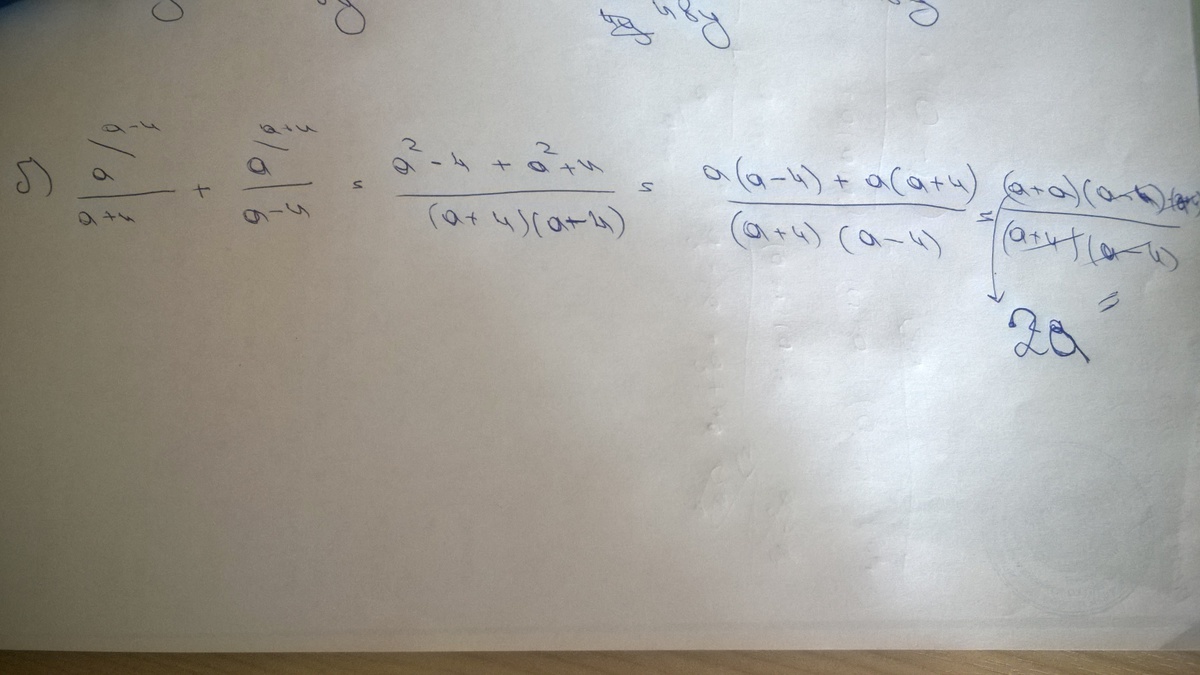 48y
5) a/a-4 / a+4 + a/a+4 / a-4 = a²-4 + a²+4 / (a+4)(a-4) = a(a-4) + a(a+4) / (a+4) (a-4) = (a+a)(a-4) / (a+4)(a-4) =
2a